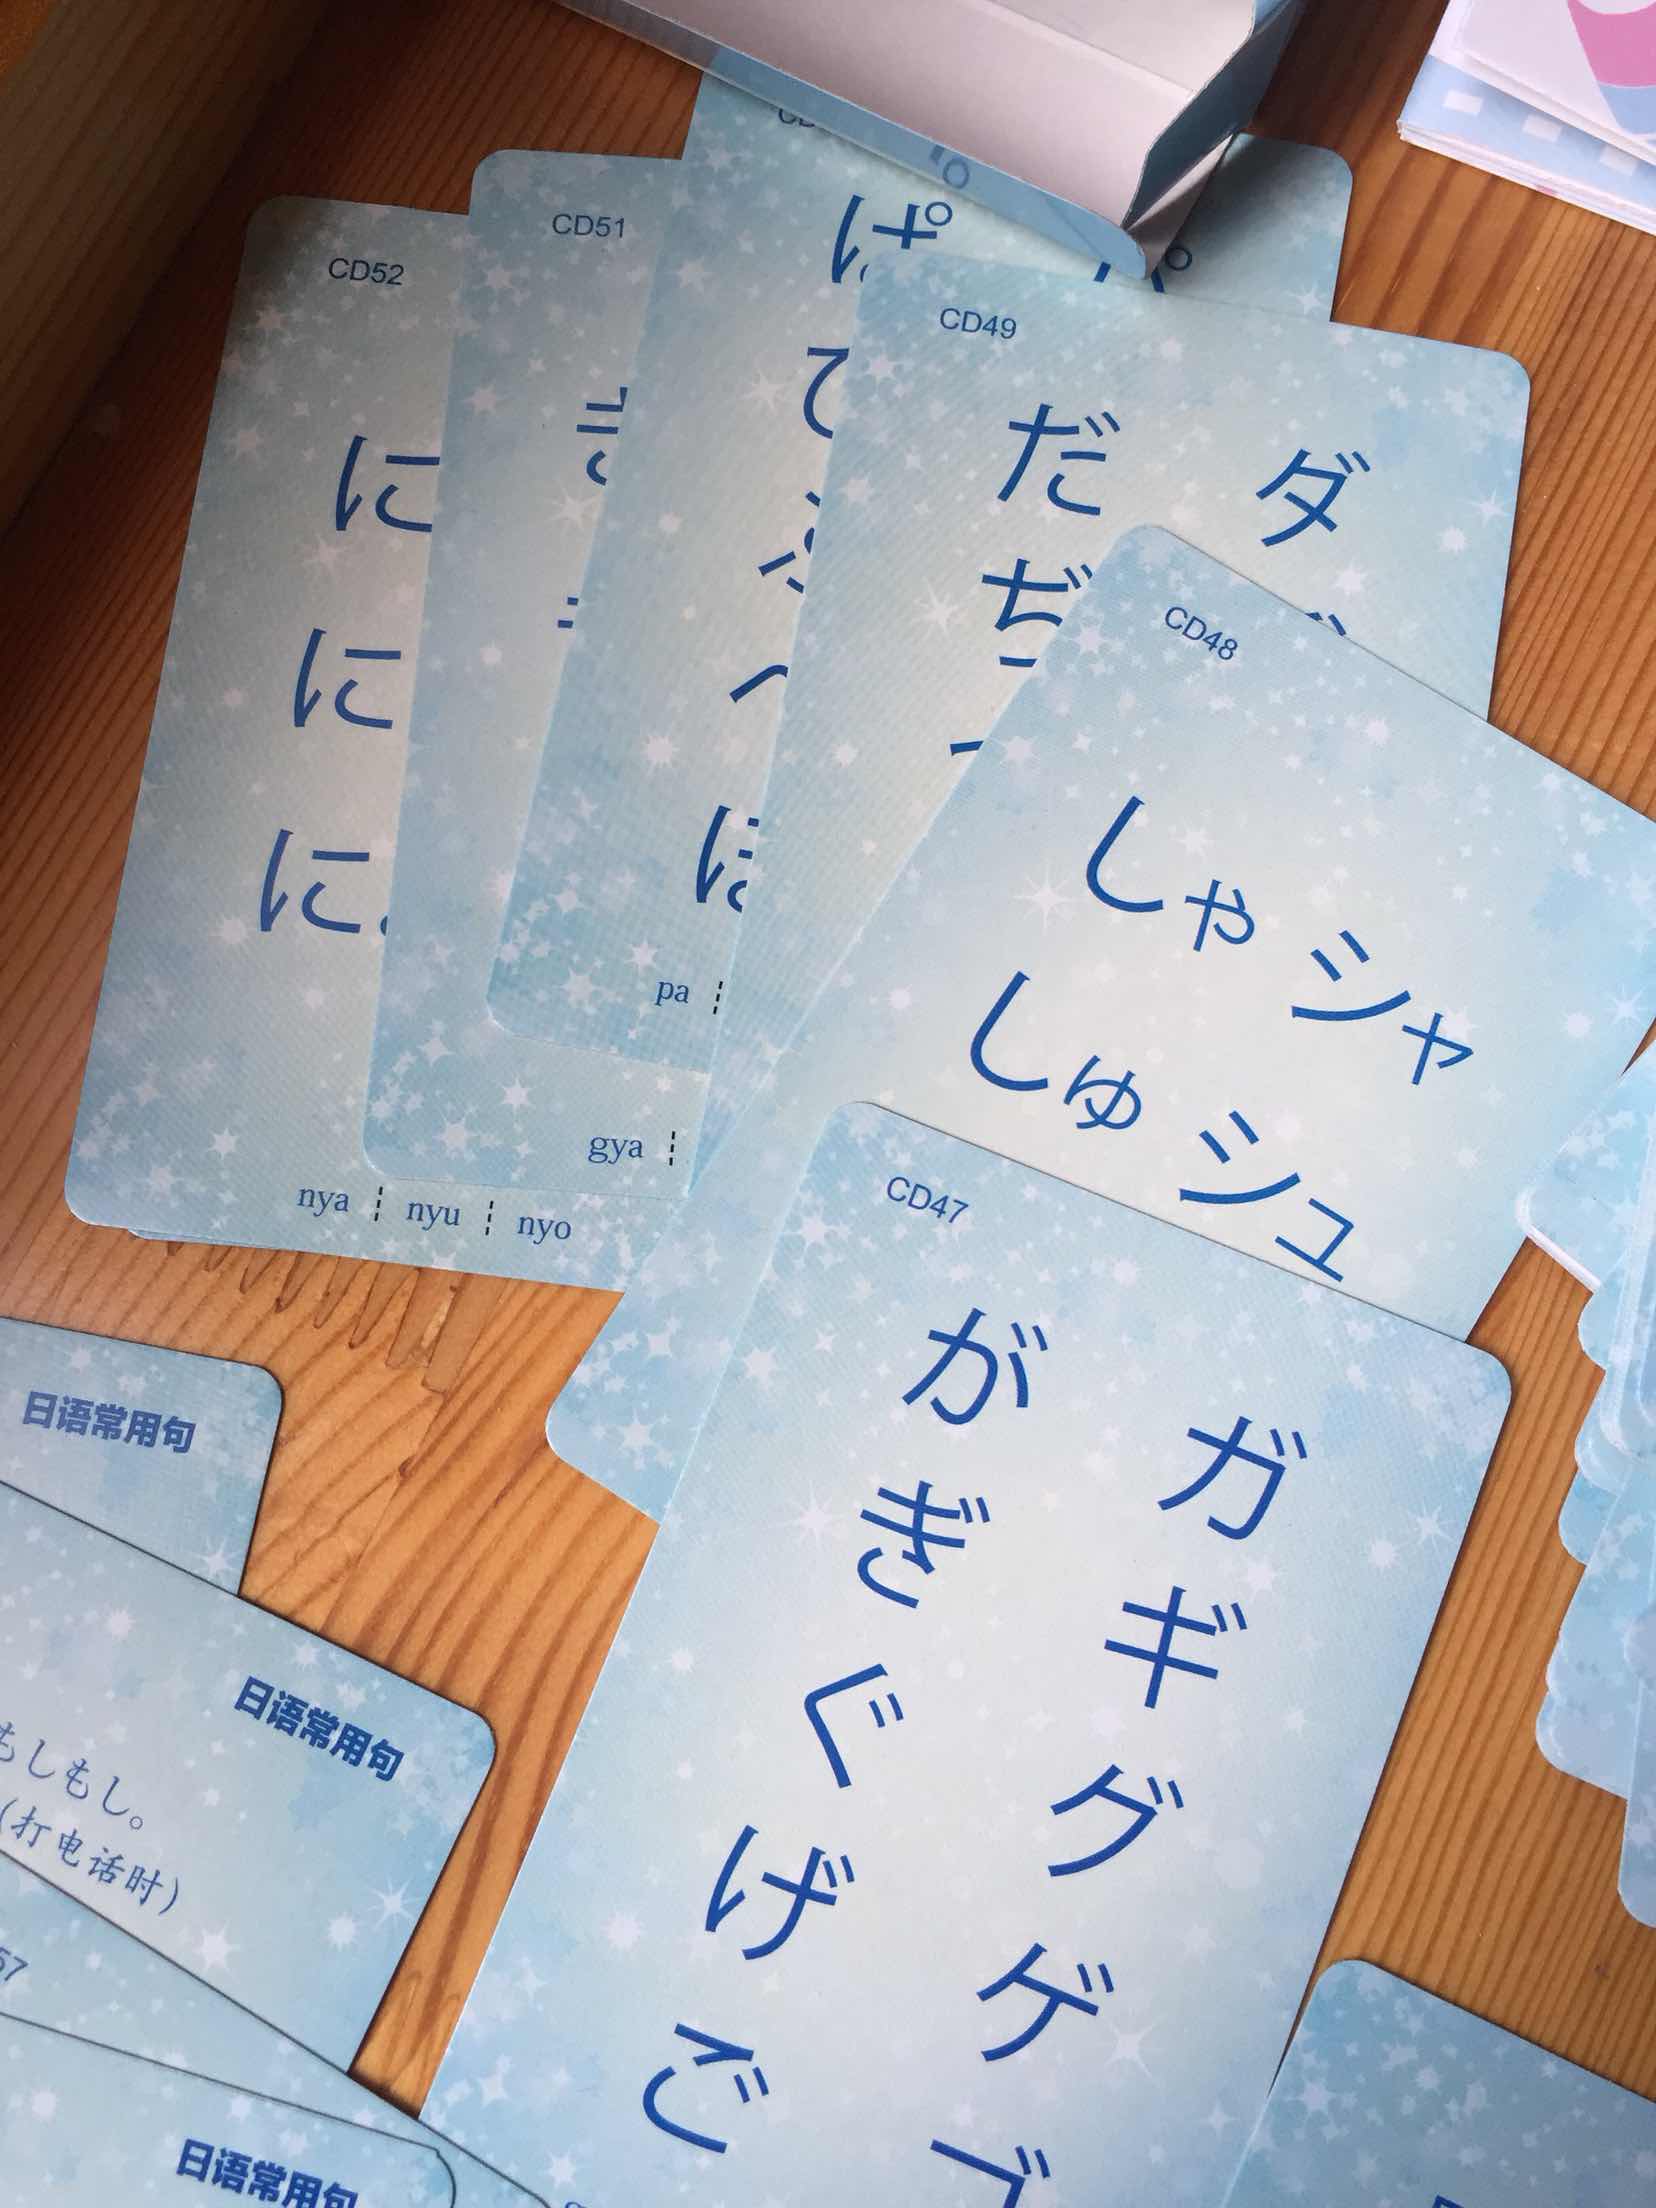 CD52
に
に
に
nya ┆ nyu ┆ nyo
CD51
gya ┆
ぱ
pa ┆
CD49
だ ダ
ぢ
CD48
しゃ シャ
しゅ シュ
CD47
が ガ
ぎ ギ
ぐ グ
げ ゲ
ご ゴ
日语常用句
日语常用句
もしもし。
(打电话时)
57
日语常用句